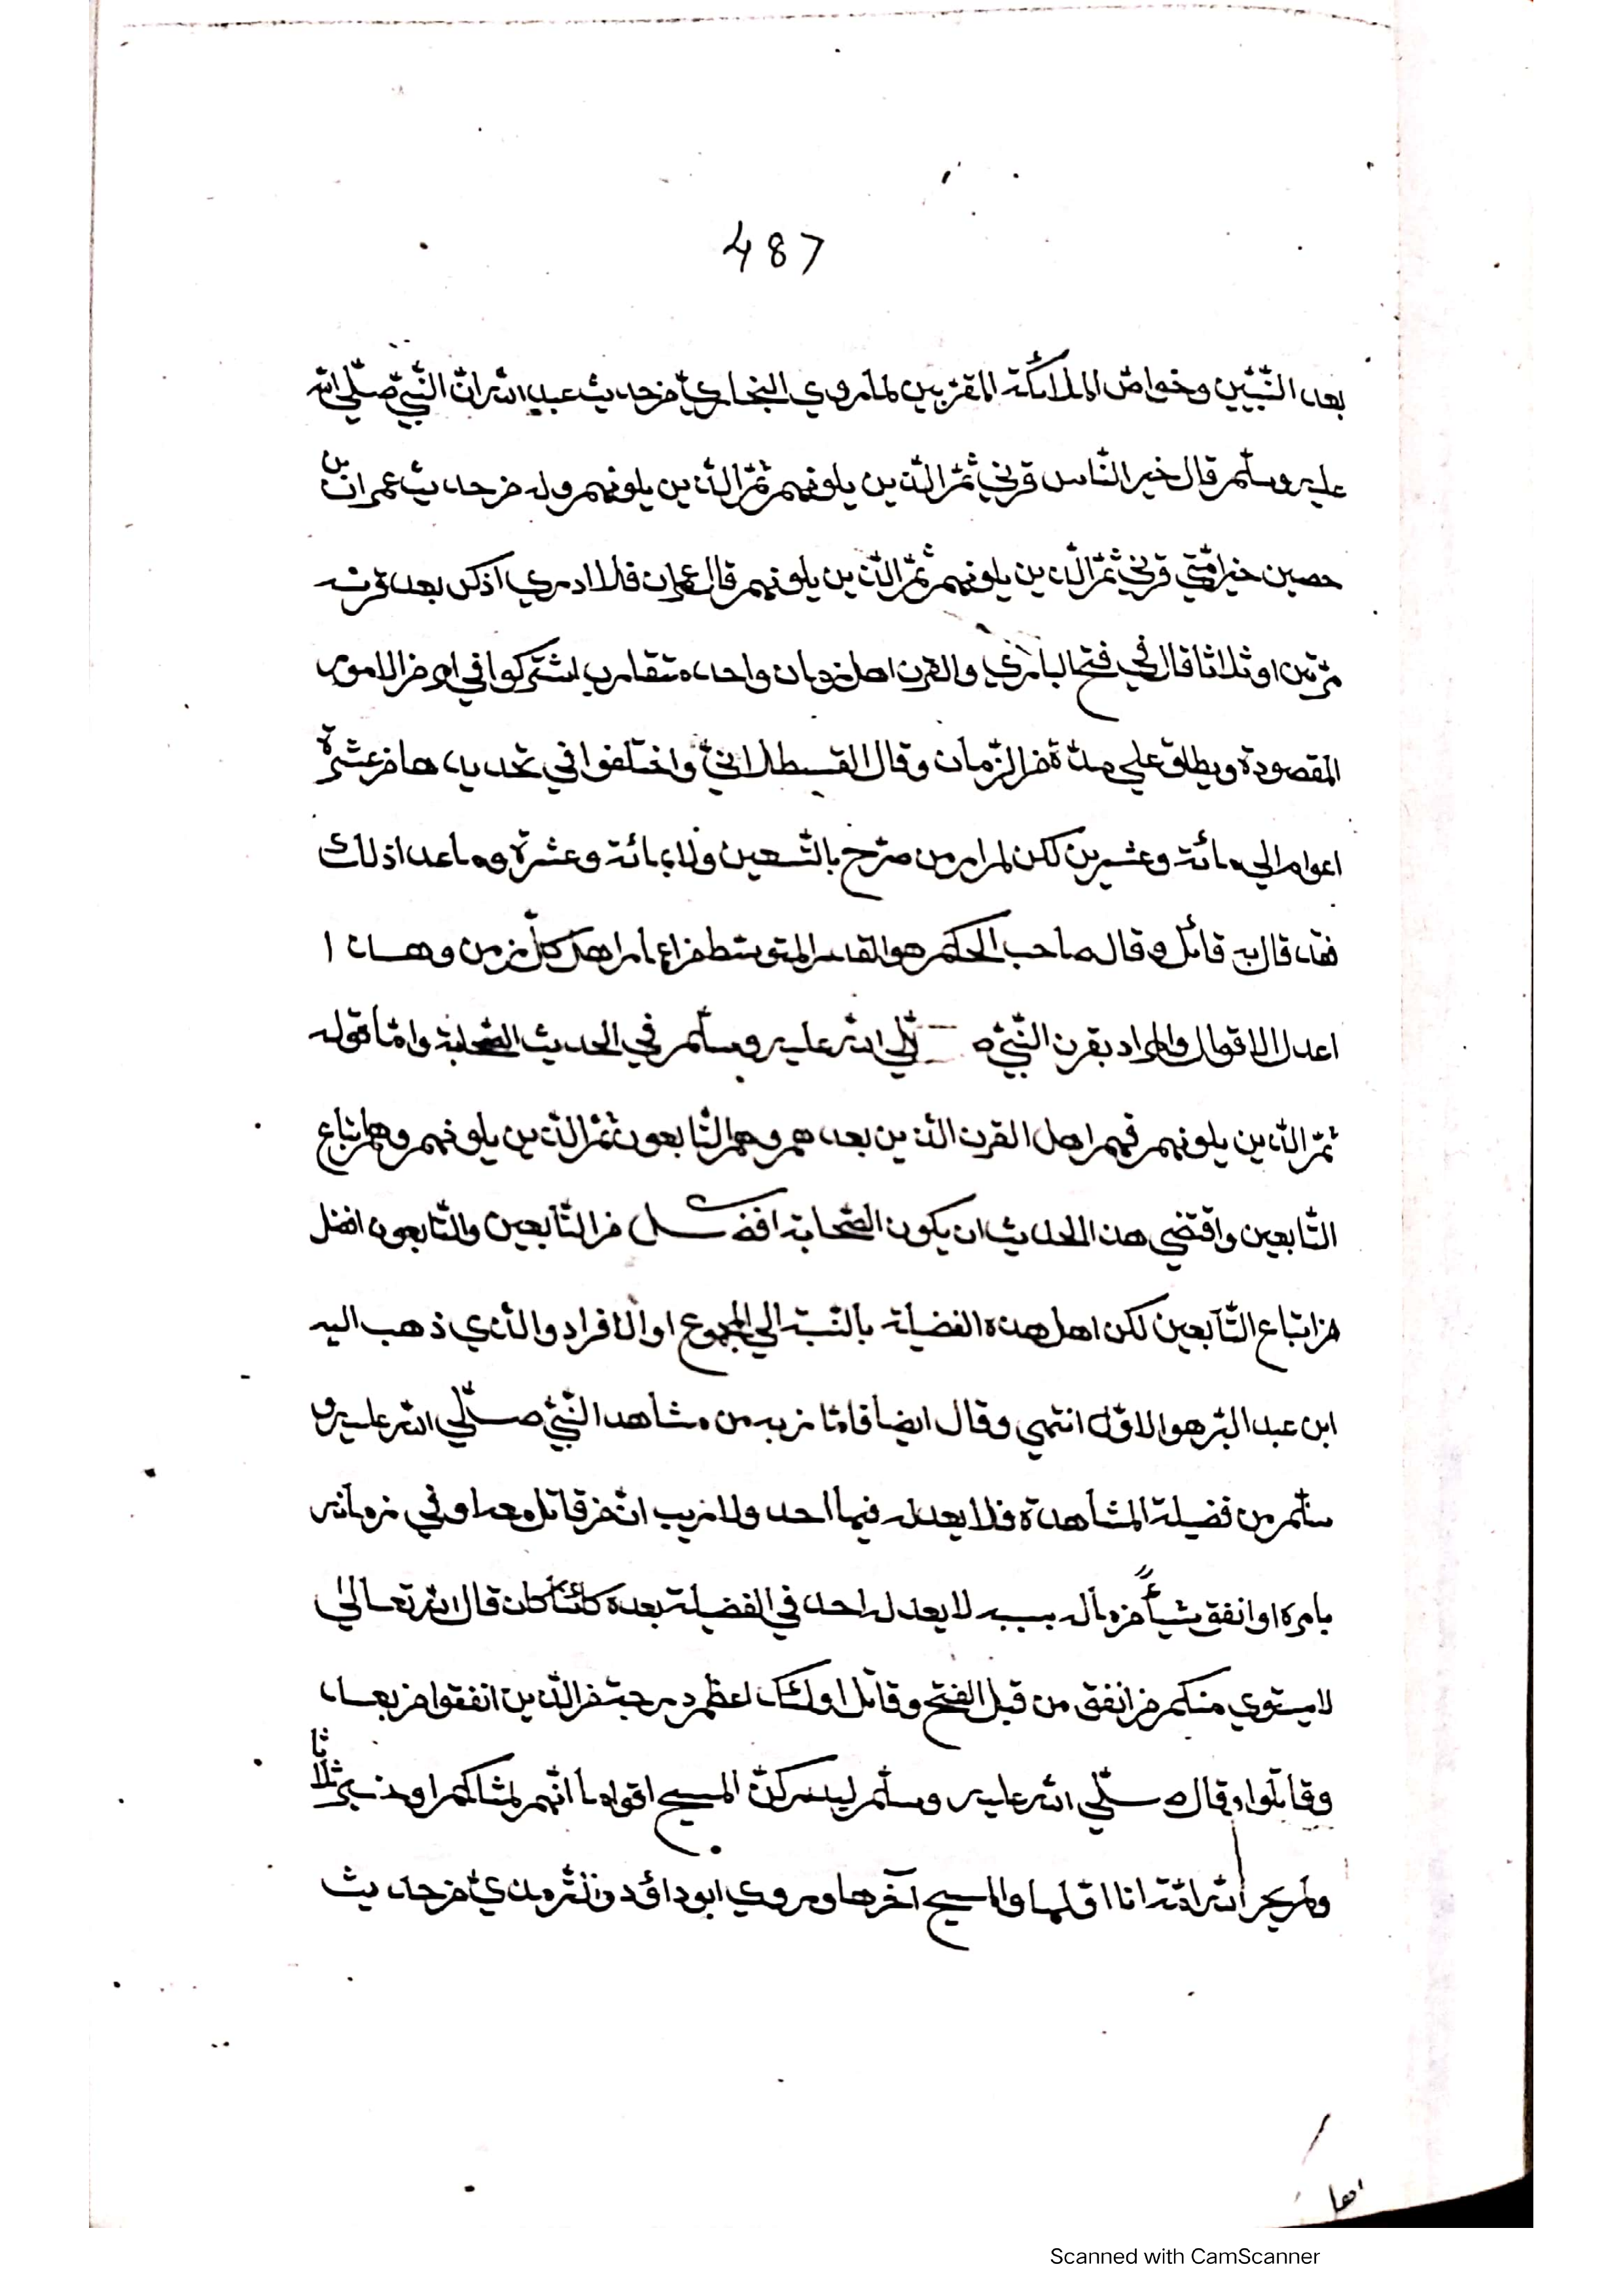 487
بعد النّبيّين وخواصّ الملائكة المقرّبين لما روي البخاريّ من حديث عبد الله انّ النّبيّ صلّي الله
عليه وسلّم قال خير النّاس قرني ثمّ الّذين يلونهم ثمّ الّذين يلونهم وله من حديث عمران بن
حصين خير امّتي قرني ثمّ الّذين يلونهم ثمّ الّذين يلونهم قال عمران فلا ادري اذكر بعد قرنه
مرّتين او ثلاثا قال في فتح الباري والقرن اهل زمان واحد متقارب اشتركوا في امر من الامور
المقصودة ويطلق علي مدّة من الزّمان وقال القسطلانيّ واختلفوا في تحديدها من عشرة
اعوام الي مائة وعشرين لكن لم ار من صرّح بالتّسعين ولا بمائة وعشرة وما عدا ذلك
فقد قال به قائل وقال صاحب المحكم هو القدر المتوسّط من اعمار اهل كلّ زمن وهذا
اعدل الاقوال والمراد بقرن النّبيّ صلّي الله عليه وسلّم في الحديث الصّحابة وامّا قوله
ثمّ الّذين يلونهم فهم اهل القرن الّذين بعدهم وهم التّابعون ثمّ الّذين يلونهم وهم اتباع
التّابعين واقتضي هذا الحديث ان يكون الصّحابة افضل من التّابعين والتّابعون افضل
من اتباع التّابعين لكن اهل هذه الفضيلة بالنّسبة الي المجموع او الافراد والّذي ذهب اليه
ابن عبد البرّ هو الاوّل انتهي وقال ايضا فامّا من به من مشاهد النّبيّ صلّي الله عليه و
سلّم من فضيلة المشاهدة فلا يعدله فيها احد ولا ريب انّ من قاتل معه او في زمانه
بامره او انفق شيأً من ماله بسببه لا يعدله احد في الفضيلة بعده كائنا من كان قال الله تعالي
لا يستوي منكم من انفق من قبل الفتح وقاتل اولئك اعظم درجة من الّذين انفقوا من بعد
وقاتلوا وقال صلّي الله عليه وسلّم ليدركنّ المسيح اقواما انّهم لمثلكم او خير ثلاثا
ولم يخز الله امّة انا اوّلها والمسيح آخرها وروي ابو داؤد والتّرمذيّ من حديث
Scanned with CamScanner